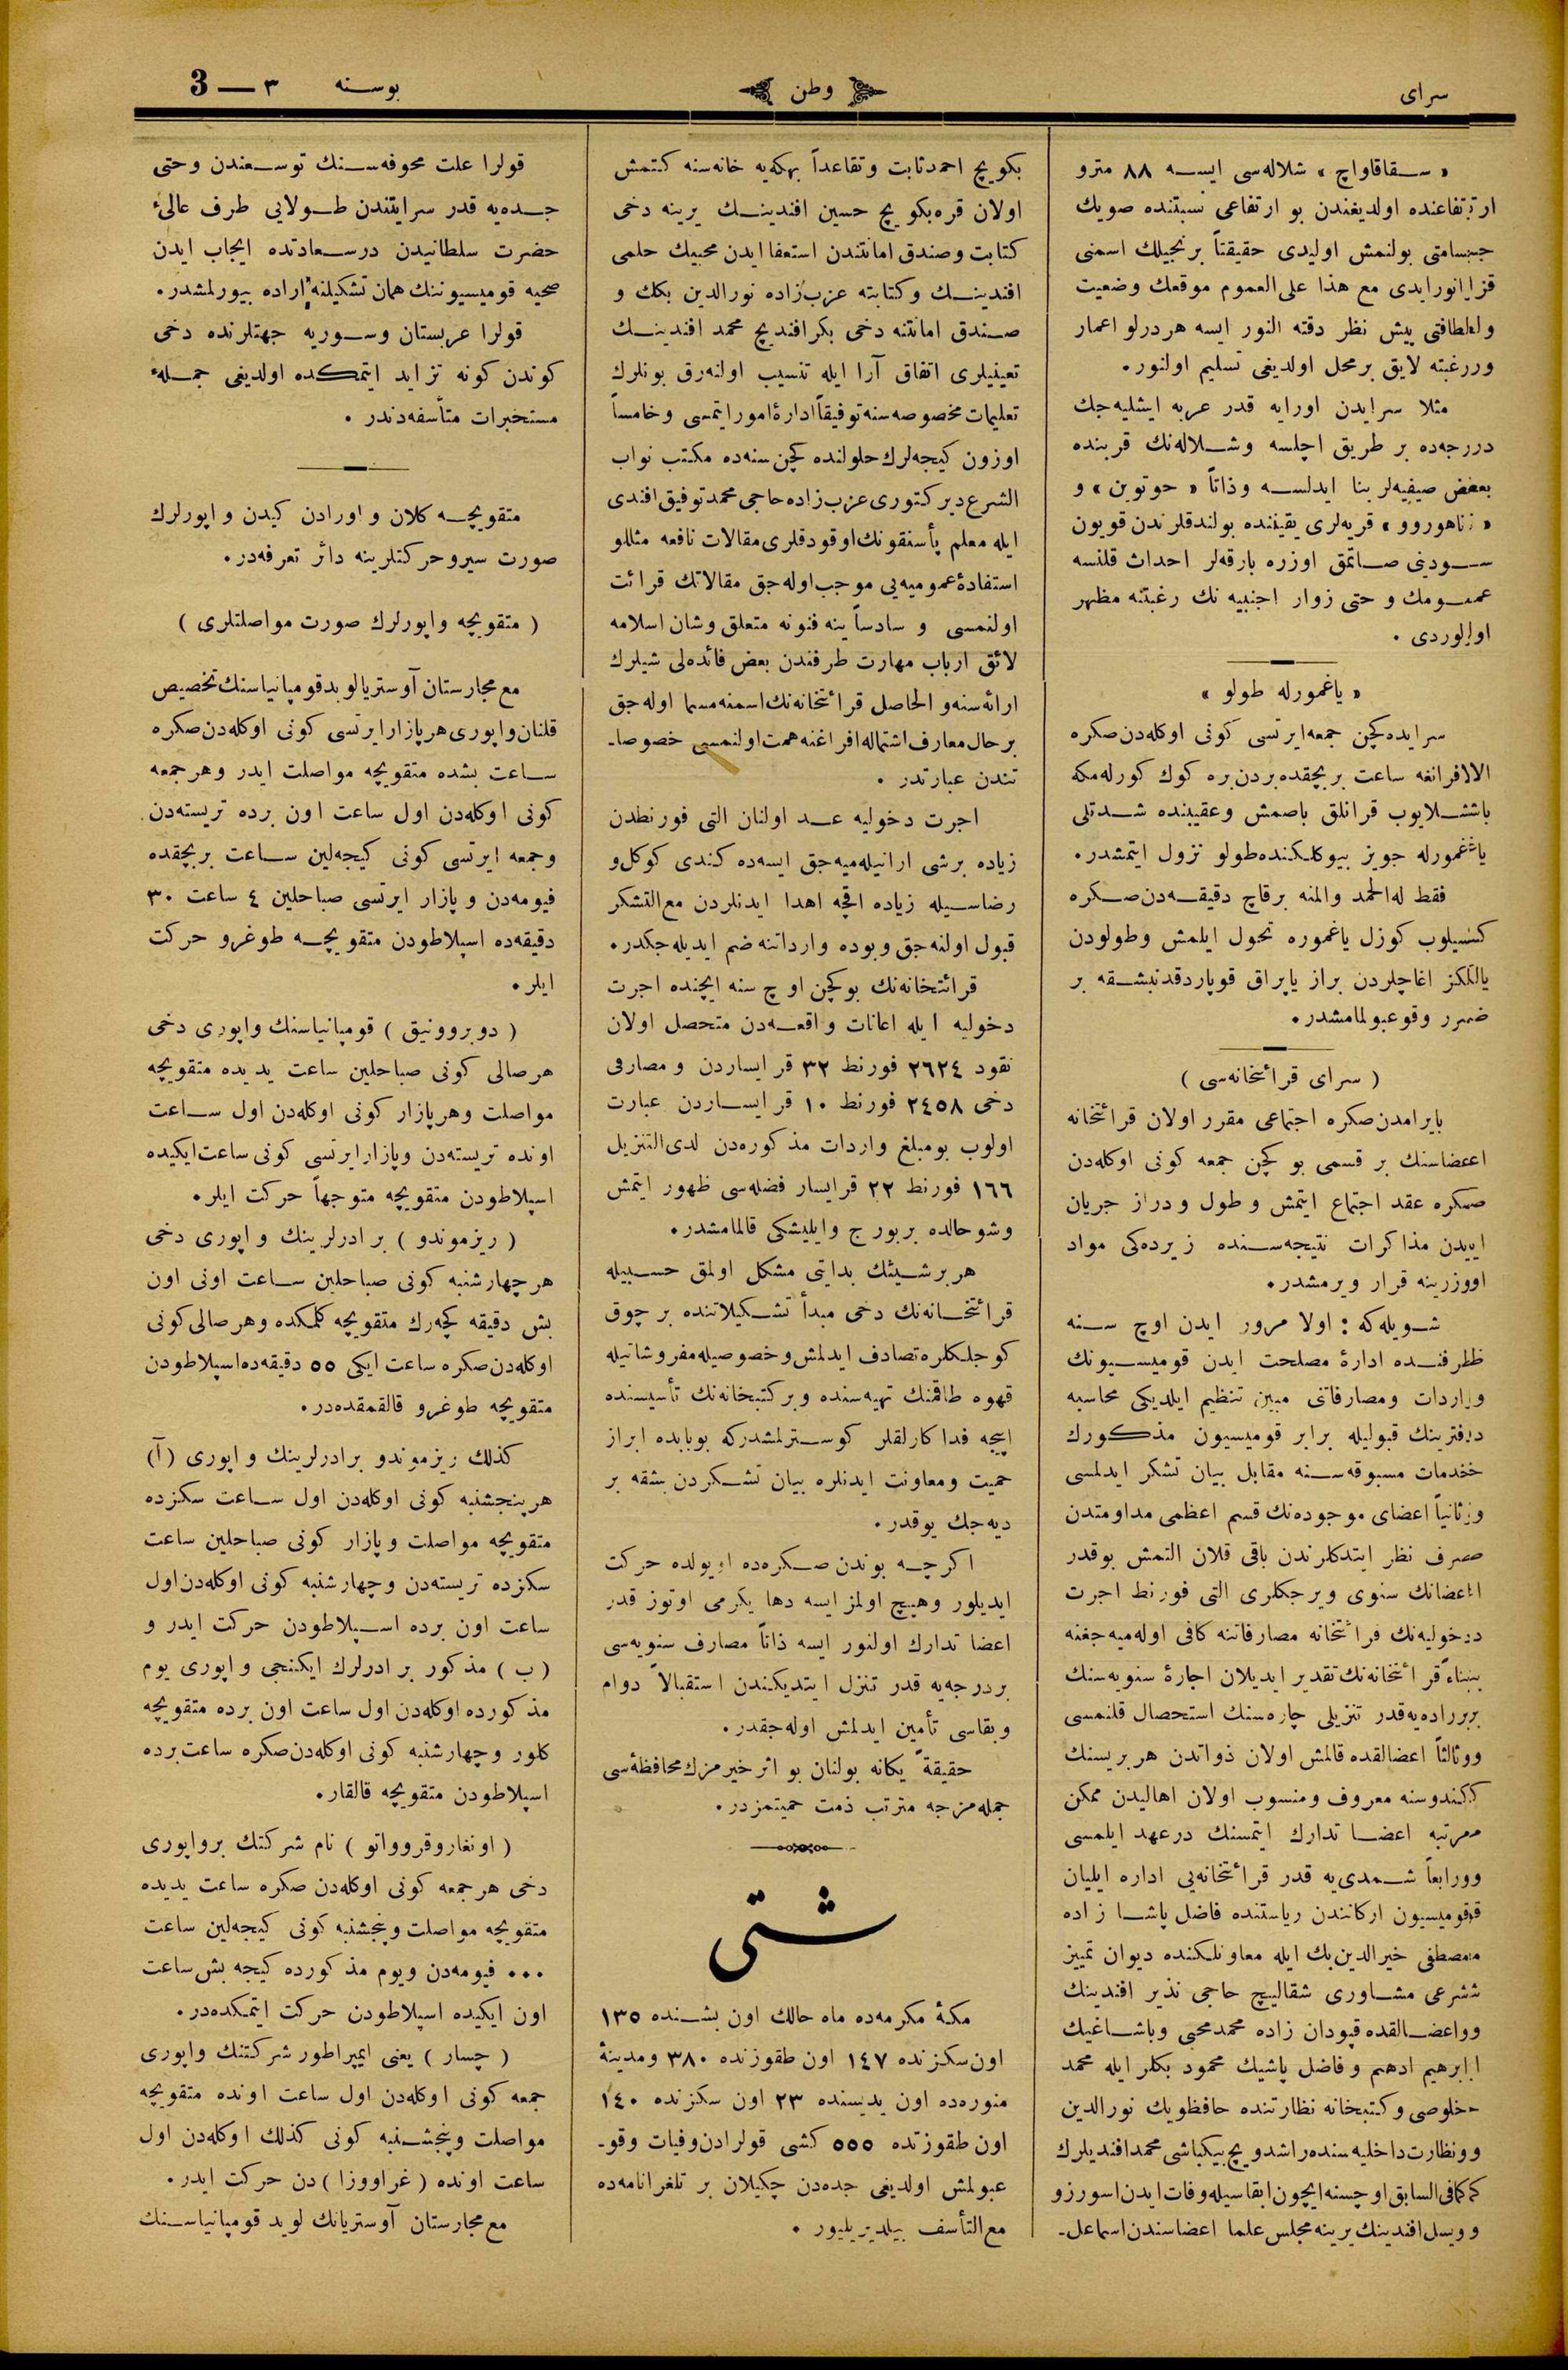 سرای
وطن
بوسنه
٣ — 3
« سقاقاواچ » شلاله‌سی ایسه ٨٨ مترو
ارتفاعنده اولدیغندن بو ارتفاعی نسبتنده صویك
جسامتی بولنمش اولیدی حقیقتاً برنجیلك اسمنی
قزانورایدی مع هذا علی العموم موقعك وضعیت
ولطافتی پیش نظر دقته النور ایسه هردرلو اعمار
ورغبته لایق برمحل اولدیغی تسلیم اولنور.
مثلا سرایدن اورایه قدر عربه ایشلیه‌جك
درجه‌ده بر طریق اچلسه وشلاله‌نك قربنده
بعض صیفیه‌لر بنا ایدلسه وذاتاً « حوتوین » و
« ناهوروو » قریه‌لری یقیننده بولندقلرندن قویون
سودینی صاتمق اوزره بارقه‌لر احداث قلنسه
عمومك و حتی زوار اجنبیه نك رغبتنه مظهر
اولوردی .
« یاغمورله طولو »
سرایده کچن جمعه‌ایرتسی کونی اوکله‌دن صکره
الافرانغه ساعت بربچقده بردن بره کوك کورله‌مکه
باشلایوب قرانلق باصمش وعقیبنده شدتلی
یاغمورله جویز بیوکلکنده طولو نزول ایتمشدر.
فقط له الحمد والمنه برقاچ دقیقه‌دن صکره
کسیلوب کوزل یاغموره تحول ایلمش وطولودن
یالکز اغاچلردن براز یاپراق قوپاردقدنبشقه بر
ضرر وقوعبولمامشدر.
( سرای قرائتخانه‌سی )
بایرامدن صکره اجتماعی مقرر اولان قرائتخانه
اعضاسنك بر قسمی بو کچن جمعه کونی اوکله‌دن
صکره عقد اجتماع ایتمش و طول و دراز جریان
ایدن مذاکرات نتیجه‌سنده زیرده‌کی مواد
اوزرینه قرار ویرمشدر.
شویله‌که : اولا مرور ایدن اوچ سنه
ظرفنده ادارهٔ مصلحت ایدن قومیسیونك
واردات ومصارفاتنی مبین تنظیم ایلدیکی محاسبه
دفترینك قبولیله برابر قومیسیون مذکورك
خدمات مسبوقه‌سنه مقابل بیان تشکر ایدلمسی
وثانیاً اعضای موجوده‌نك قسم اعظمی مداومتدن
صرف نظر ایتدکلرندن باقی قلان التمش بوقدر
اعضانك سنوی ویرجکلری التی فورنط اجرت
دخولیه‌نك قرائتخانه مصارفاتنه کافی اوله‌میه‌جغنه
بناءً قرائتخانه‌نك تقدیر ایدیلان اجارهٔ سنویه‌سنك
برراده‌یه قدر تنزیلی چاره‌سنك استحصال قلنمسی
وثالثاً اعضالقده قالمش اولان ذواتدن هربریسنك
کندوسنه معروف ومنسوب اولان اهالیدن ممکن
مرتبه اعضا تدارك ایتمسنك درعهد ایلمسی
ورابعاً شمدی‌یه قدر قرائتخانه‌یی اداره ایلیان
قومیسیون ارکانندن ریاستنده فاضل پاشا زاده
مصطفی خیرالدین بك ایله معاونلکنده دیوان تمییز
شرعی مشاوری شقالییچ حاجی نذیر افندینك
واعضالقده قپودان زاده محمد محیی وباشاغیك
ابرهیم ادهم و فاضل پاشیك محمود بکلر ایله محمد
خلوصی وکتبخانه نظارتنده حافظویك نورالدین
ونظارت داخلیه‌سنده راشدویچ بیکباشی محمد افندیلرك
کمافی السابق اوچسنه‌ایچون ابقاسیله وفات ایدن اسورزو
ویسل افندینك یرینه مجلس علما اعضاسندن اسماعل-
بکویچ احمد ثابت وتقاعداً بهکه‌یه خانه‌سنه کتمش
اولان قره‌بکویچ حسین افندینك یرینه دخی
کتابت وصندق امانتندن استعفا ایدن محیبك حلمی
افندینك وکتابته عزب‌زاده نورالدین بکك و
صندق امانتنه دخی بکرافندیچ محمد افندینك
تعینیلری اتفاق آرا ایله تنسیب اولنه‌رق بونلرك
تعلیمات مخصوصه‌سنه توفیقاً ادارهٔ امور ایتمسی وخامساً
اوزون کیجه‌لرك حلولنده کچن سنه‌ده مکتب نواب
الشرع دیرکتوری عزب‌زاده حاجی محمد توفیق افندی
ایله معلم پأسنقونك اوقودقلری مقالات نافعه مثللو
استفادهٔ عمومیه‌یی موجب اوله‌جق مقالاتك قرائت
اولنمسی و سادساً ینه فنونه متعلق وشان اسلامه
لائق ارباب مهارت طرفندن بعض فائده‌لی شیلرك
ارائه‌سنه و الحاصل قرائتخانه‌نك اسمنه مسما اوله‌جق
برحال معارف اشتماله افراغنه همت اولنمسی خصوصا-
تندن عبارتدر .
اجرت دخولیه عد اولنان التی فورنطدن
زیاده برشی ارانیله‌میه‌جق ایسه‌ده کندی کوکل و
رضاسیله زیاده اقچه اهدا ایدنلردن مع التشکر
قبول اولنه‌جق وبوده وارداتنه ضم ایدیله‌جکدر.
قرائتخانه‌نك بوکچن اوچ سنه ایچنده اجرت
دخولیه ایله اعانات واقعه‌دن متحصل اولان
نقود ٢٦٢٤ فورنط ٣٢ قرایساردن و مصارفی
دخی ٢٤٥٨ فورنط ١٠ قرایساردن عبارت
اولوب بومبلغ واردات مذکوره‌دن لدی التنزیل
١٦٦ فورنط ٢٢ قرایسار فضله‌سی ظهور ایتمش
وشوحالده بربورج وایلیشکی قالمامشدر.
هربرشیئك بدایتی مشکل اولمق حسبیله
قرائتخانه‌نك دخی مبدأ تشکیلاتنده بر چوق
کوجلکلره تصادف ایدلمش وخصوصیله مفروشاتیله
قهوه طاقمنك تهیه‌سنده وبر کتبخانه‌نك تأسیسنده
ایجه فداکارلقلر کوسترلمشدرکه بوبابده ابراز
حمیت ومعاونت ایدنلره بیان تشکردن بشقه بر
دیه‌جك یوقدر.
اکرچه بوندن صکره‌ده اویولده حرکت
ایدیلور وهیچ اولمز ایسه دها یکرمی اوتوز قدر
اعضا تدارك اولنور ایسه ذاتاً مصارف سنویه‌سی
بردرجه‌یه قدر تنزل ایتدیکندن استقبالاً دوام
وبقاسی تأمین ایدلمش اوله‌جقدر.
حقیقةً یکانه بولنان بو اثر خیرمزك محافظه‌سی
جمله‌مزجه مترتب ذمت حمیتمزدر.
شتی
مکهٔ مکرمه‌ده ماه حالك اون بشنده ١٣٥
اون سکزنده ١٤٧ اون طقوزنده ٣٨٠ ومدینهٔ
منوره‌ده اون یدیسنده ٢٣ اون سکزنده ١٤٠
اون طقوزتده ٥٥٥ کشی قولرادن وفیات وقو-
عبولمش اولدیغی جده‌دن چکیلان بر تلغرافنامه‌ده
مع التأسف بیلدیریلیور .
قولرا علت مخوفه‌سنك توسعندن وحتی
جده‌یه قدر سرایتندن طولایی طرف عالیٔ
حضرت سلطانیدن درسعادتده ایجاب ایدن
صحیه قومیسیوننك همان تشکیلنه اراده بیورلمشدر.
قولرا عربستان وسوریه جهتلرنده دخی
کوندن کونه تزاید ایتمکده اولدیغی جملهٔ
مستخبرات متأسفه‌دندر .
متقویچه کلان و اورادن کیدن واپورلرك
صورت سیروحرکتلرینه دائر تعرفه‌در.
( متقویچه واپورلرك صورت مواصلتلری )
مع مجارستان آوستریا لوید قومپانیاسنك تخصیص
قلنان واپوری هر پازار ایرتسی کونی اوکله‌دن صکره
ساعت بشده متقویچه مواصلت ایدر وهرجمعه
کونی اوکله‌دن اول ساعت اون برده تریسته‌دن
وجمعه ایرتسی کونی کیجه‌لین ساعت بربچقده
فیومه‌دن و پازار ایرتسی صباحلین ٤ ساعت ٣٠
دقیقه‌ده اسپلاطودن متقویچه طوغرو حرکت
ایلر.
( دوبروونیق ) قومپانیاسنك واپوری دخی
هرصالی کونی صباحلین ساعت یدیده متقویچه
مواصلت وهرپازار کونی اوکله‌دن اول ساعت
اونده تریسته‌دن وپازارایرتسی کونی ساعت ایکیده
اسپلاطودن متقویچه متوجهاً حرکت ایلر.
( ریزموندو ) برادرلرینك واپوری دخی
هرچهارشنبه کونی صباحلین ساعت اونی اون
بش دقیقه کچه‌رك متقویچه کلمکده وهرصالی کونی
اوکله‌دن صکره ساعت ایکی ٥٥ دقیقه‌ده اسپلاطودن
متقویچه طوغرو قالقمقده‌در.
کذلك ریزموندو برادرلرینك واپوری (آ)
هرپنجشنبه کونی اوکله‌دن اول ساعت سکزده
متقویچه مواصلت و پازار کونی صباحلین ساعت
سکزده تریسته‌دن وچهارشنبه کونی اوکله‌دن اول
ساعت اون برده اسپلاطودن حرکت ایدر و
( ب ) مذکور برادرلرك ایکنجی واپوری یوم
مذکورده اوکله‌دن اول ساعت اون برده متقویچه
کلور وچهارشنبه کونی اوکله‌دن صکره ساعت برده
اسپلاطودن متقویچه قالقار.
( اونغاروقروواتو ) نام شرکتك برواپوری
دخی هرجمعه کونی اوکله‌دن صکره ساعت یدیده
متقویچه مواصلت وپنجشنبه کونی کیجه‌لین ساعت
... فیومه‌دن ویوم مذکورده کیجه بش ساعت
اون ایکیده اسپلاطودن حرکت ایتمکده‌در.
( چسار ) یعنی ایمپراطور شرکتنك واپوری
جمعه کونی اوکله‌دن اول ساعت اونده متقویچه
مواصلت وپنجشنبه کونی کذلك اوکله‌دن اول
ساعت اونده ( غراووزا ) دن حرکت ایدر.
مع مجارستان آوستریانك لوید قومپانیاسنك